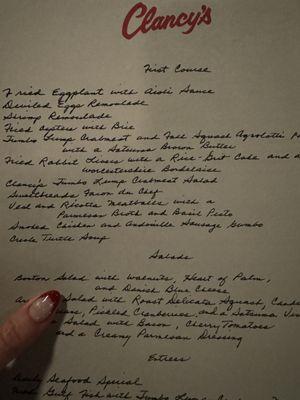 Clancy's
First Course
Fried Eggplant with Aioli Sauce
Deviled Eggs Remoulade
Shrimp Remoulade
Fried Oysters with Brie
Jumbo Lump Crabmeat and Fall Squash Agnolotti
with a Satsuma Brown Butter
Fried Rabbit Livers with a Rice Grit Cake and
Worcestershire Bordelaise
Clancy's Jumbo Lump Crabmeat Salad
Sweetbreads Facon du Chef
Veal and Ricotta Meatballs with a
Parmesan Broth and Basil Pesto
Smoked Chicken and Andouille Sausage Gumbo
Creole Turtle Soup
Salads
Boston Salad with Walnuts, Heart of Palm,
and Danish Blue Cheese
Salad with Roast Delicata Squash,
Pickled Cranberries, and a Satsuma
Salad with Bacon, Cherry Tomatoes
and a Creamy Parmesan Dressing
Entrees
Seafood Special
Gulf Fish with Jumbo Lump